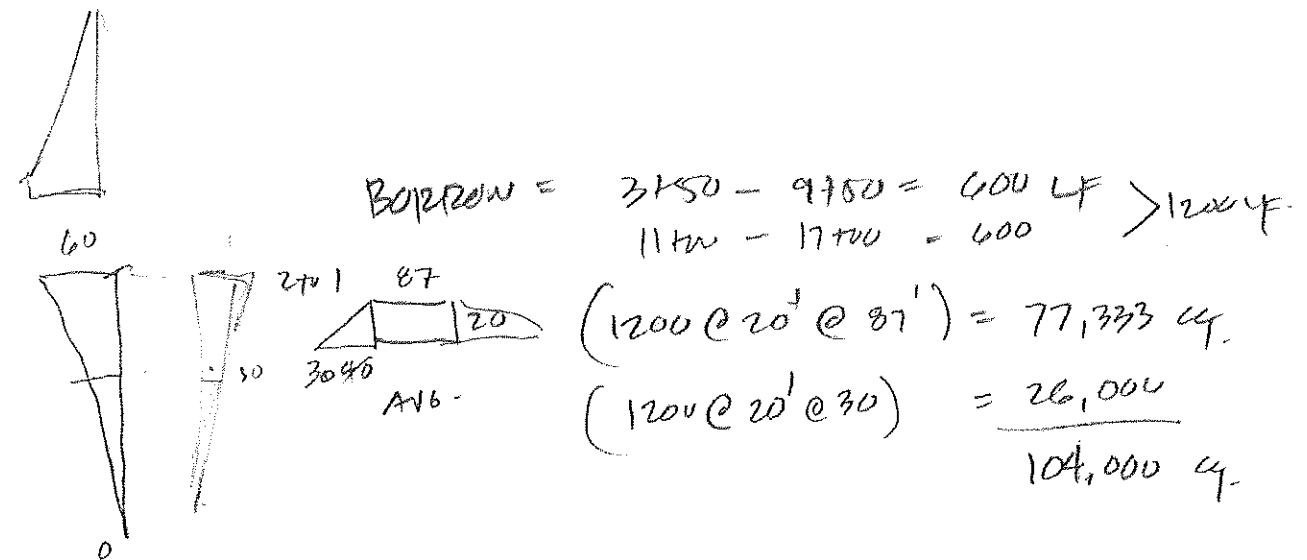 BORROW = 3+50 - 9+50 = 600 LF
11+00 - 17+00 = 600 > 1200 LF.
60
2 to 1 87
20
(1200 @ 20' @ 87') = 77,333 cy.
30
AVG.
(1200 @ 20' @ 30) = 26,000
104,000 cy.
0